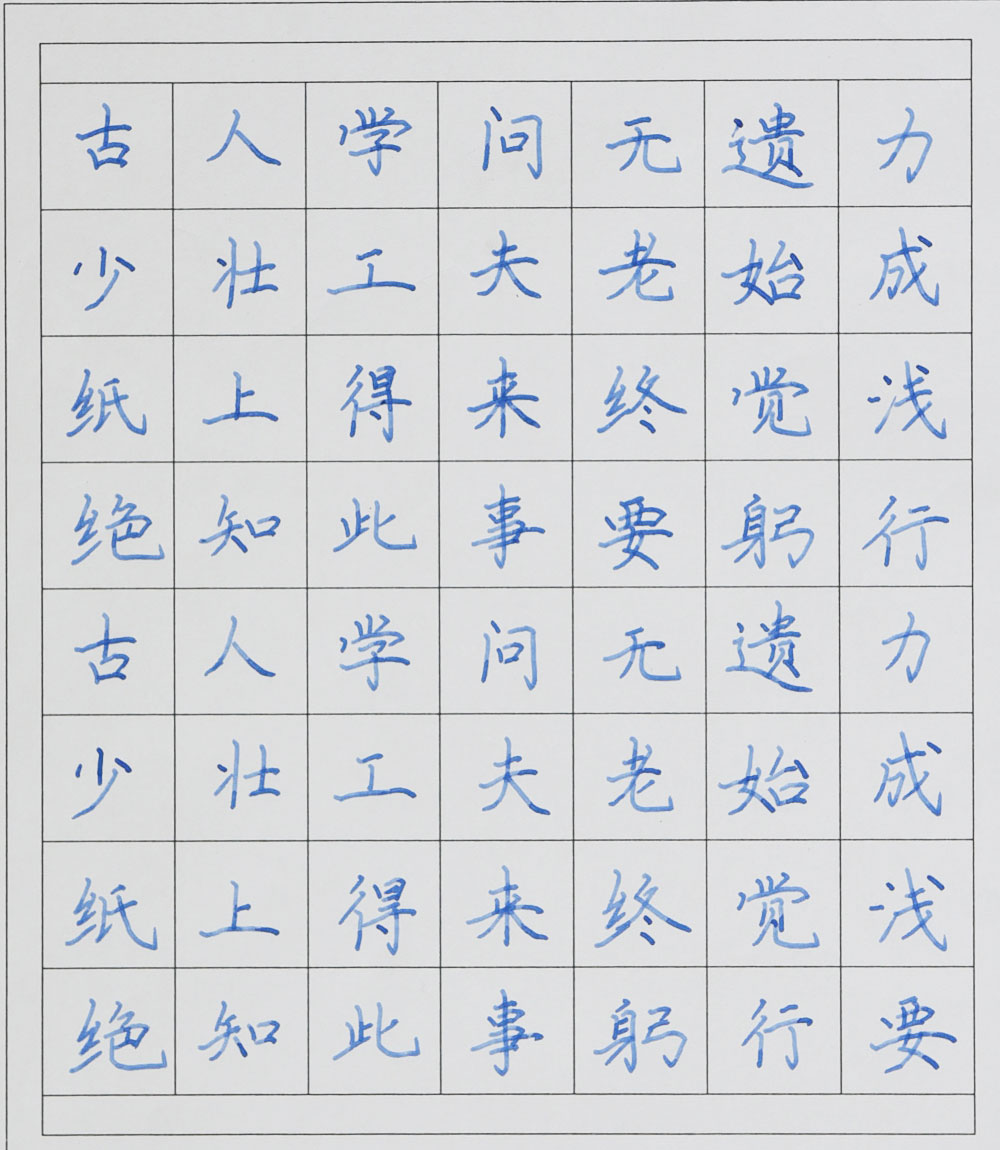 古人学问无遗力
少壮工夫老始成
纸上得来终觉浅
绝知此事要躬行
古人学问无遗力
少壮工夫老始成
纸上得来终觉浅
绝知此事躬行要